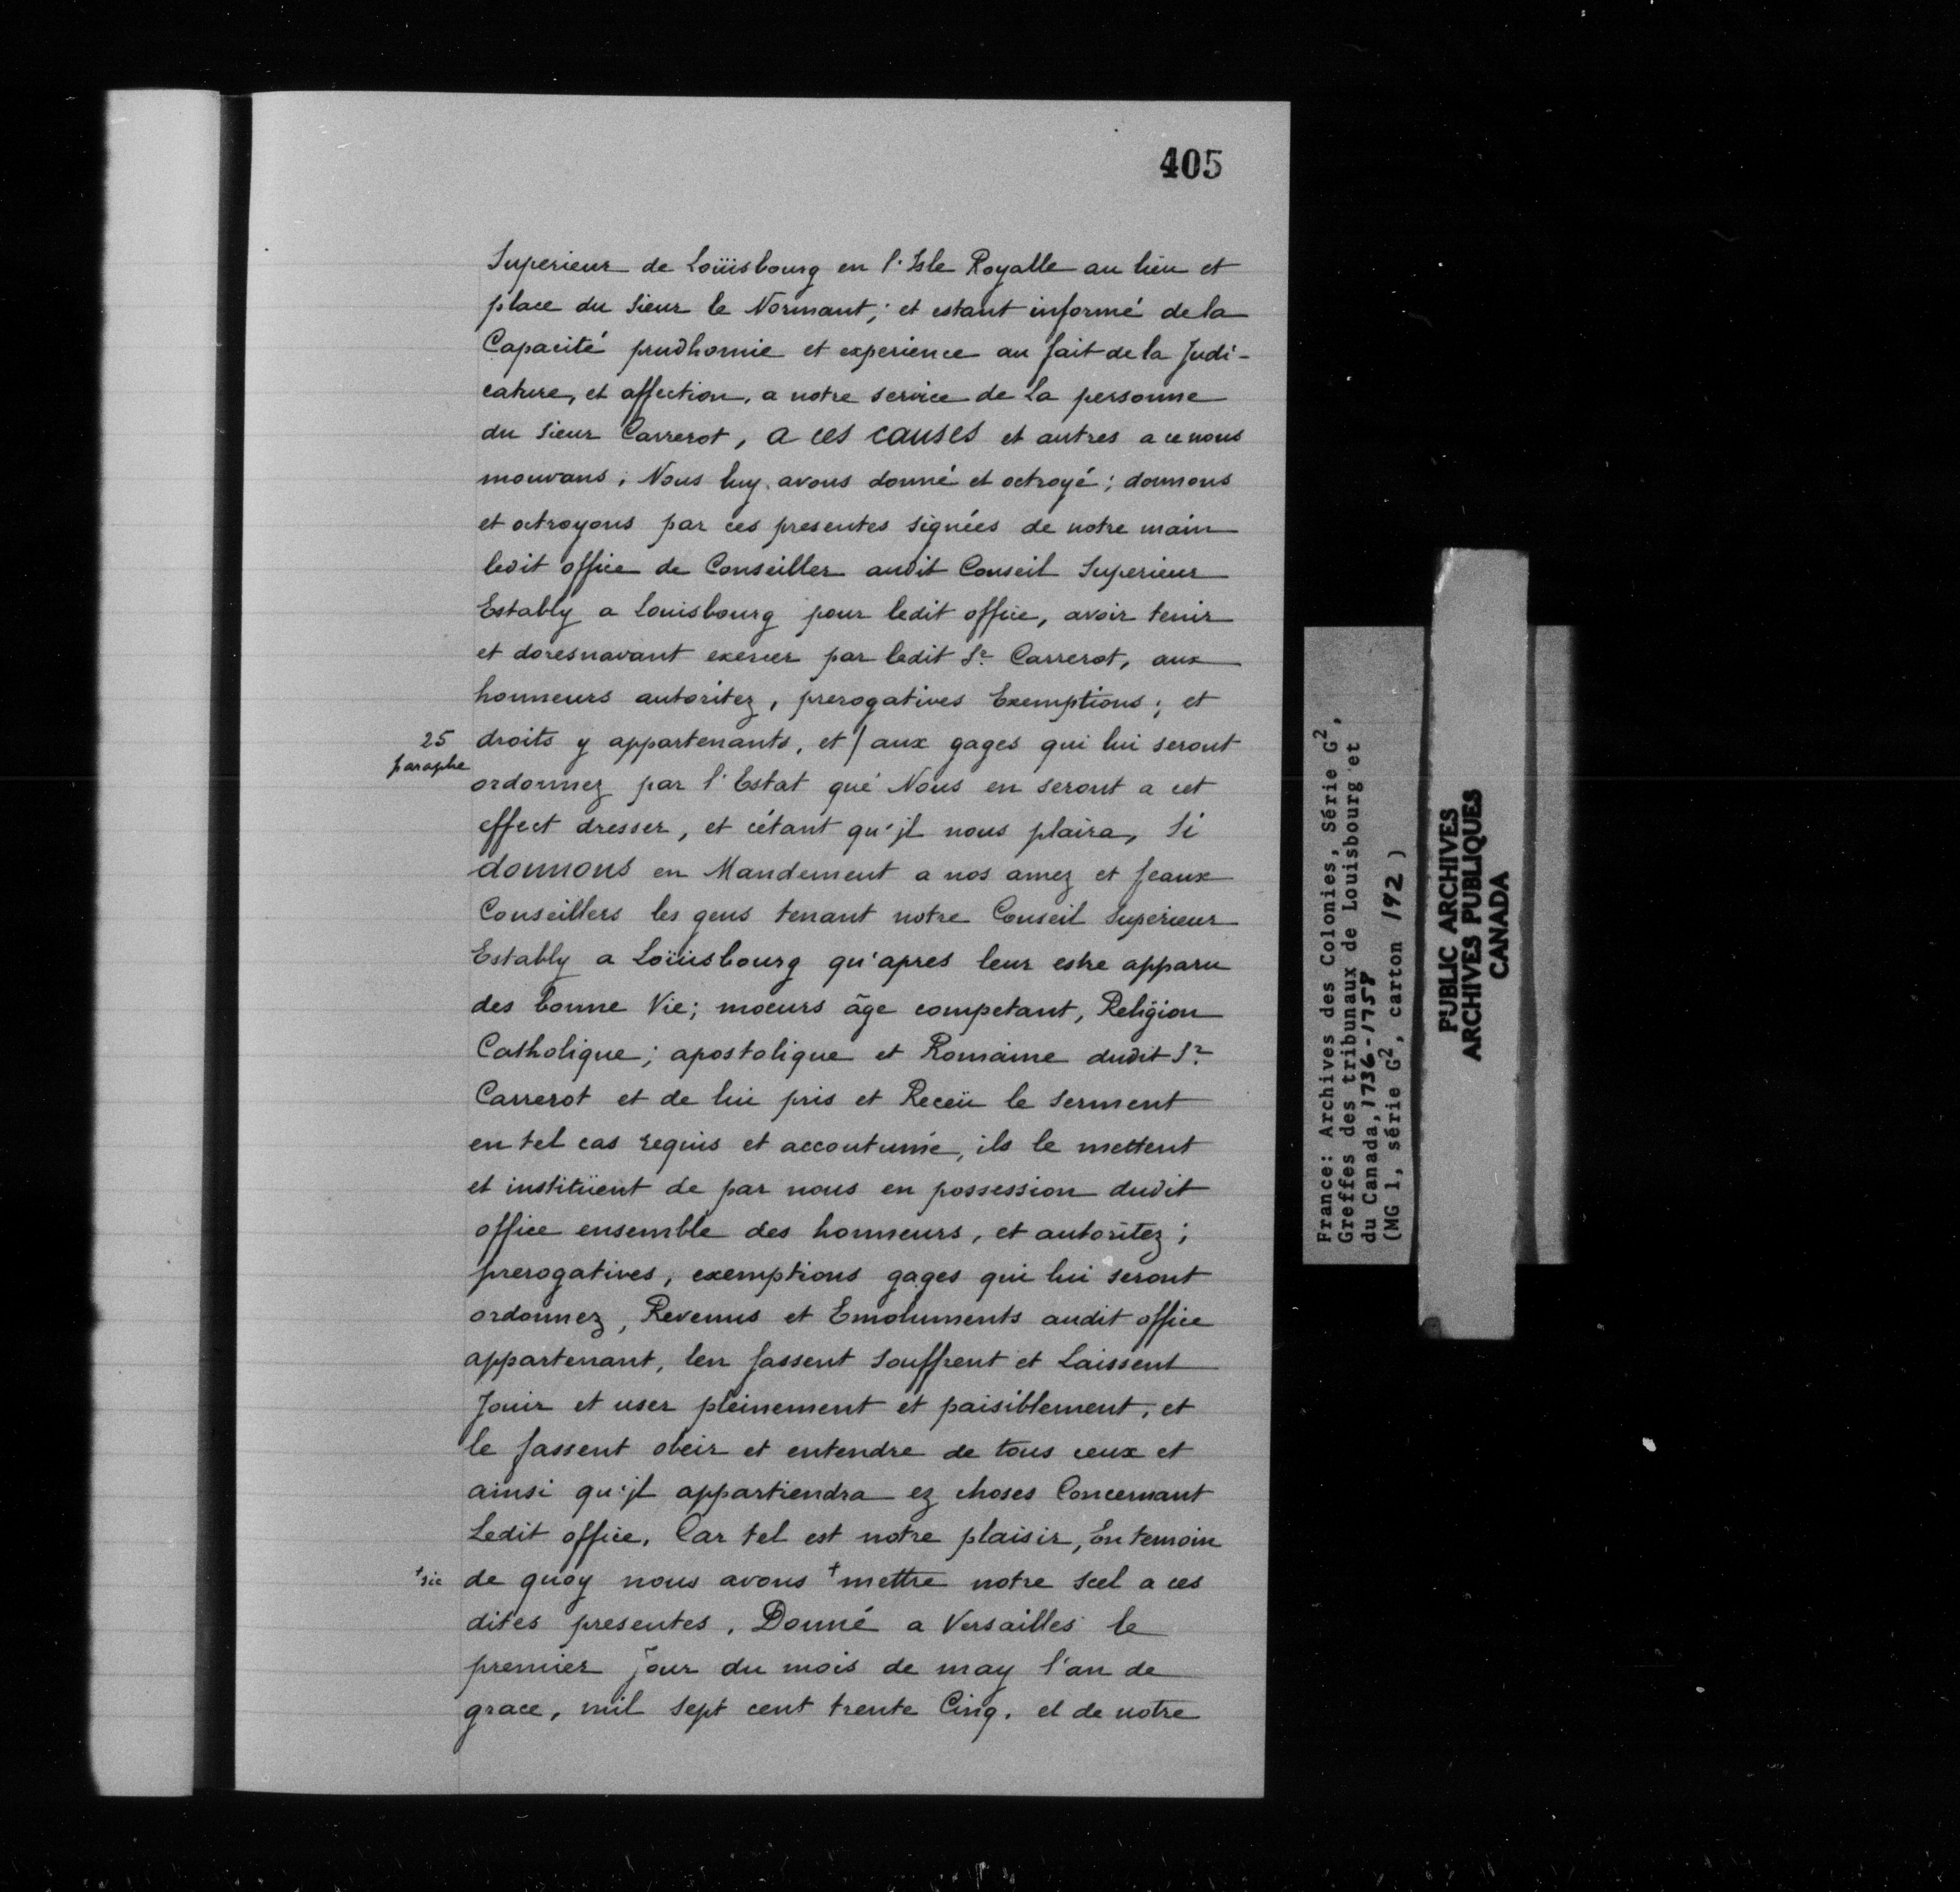 405
Superieur de Loüisbourg en l'Isle Royalle au lieu et
place du Sieur le Normant; et estant informé de la
Capacité prudhomie et experience au fait de la Judi-
cature, et affection, a notre service de La personne
du Sieur Carrerot, a ces causes et autres a ce nous
mouvans, Nous luy avons donné et octroyé; donnons
et octroyons par ces presentes signées de notre main
ledit office de Conseiller audit Conseil Superieur
Estably a Louisbourg pour ledit office, avoir tenir
et doresnavant exercer par ledit Sr. Carrerot, aux
honneurs autoritez, prerogatives Exemptions; et
25 paraphe
droits y appartenants, et / aux gages qui lui seront
ordonnez par l'Estat que Nous en seront a cet
effect dresser, et cétant qu'jl nous plaira, Si
donnons en Mandement a nos amez et feaux
Conseillers les gens tenant notre Conseil Superieur
Estably a Loüisbourg qu'apres leur estre apparu
des bonne Vie; moeurs âge competant, Religion
Catholique; apostolique et Romaine dudit Sr.
Carrerot et de lui pris et Receü le serment
en tel cas requis et accoutumé, ils le mettent
et instituent de par nous en possession dudit
office ensemble des honneurs, et autoritez;
prerogatives, exemptions gages qui lui seront
ordonnez, Revenus et Emoluments audit office
appartenant, len fassent souffrent et Laissent
Jouir et user pleinement et paisiblement, et
le fassent obeir et entendre de tous ceux et
ainsi qu'jl appartiendra ez choses Concernant
Ledit office. Car tel est notre plaisir, En temoin
+sic
de quoy nous avons + mettre notre scel a ces
dites presentes. Donné a Versailles le
premier jour du mois de may l'an de
grace, mil sept cent trente Cinq. et de notre
France: Archives des Colonies, Série G2,
Greffes des tribunaux de Louisbourg et
du Canada, 1736-1758
(MG 1, série G2, carton 192)
PUBLIC ARCHIVES
ARCHIVES PUBLIQUES
CANADA